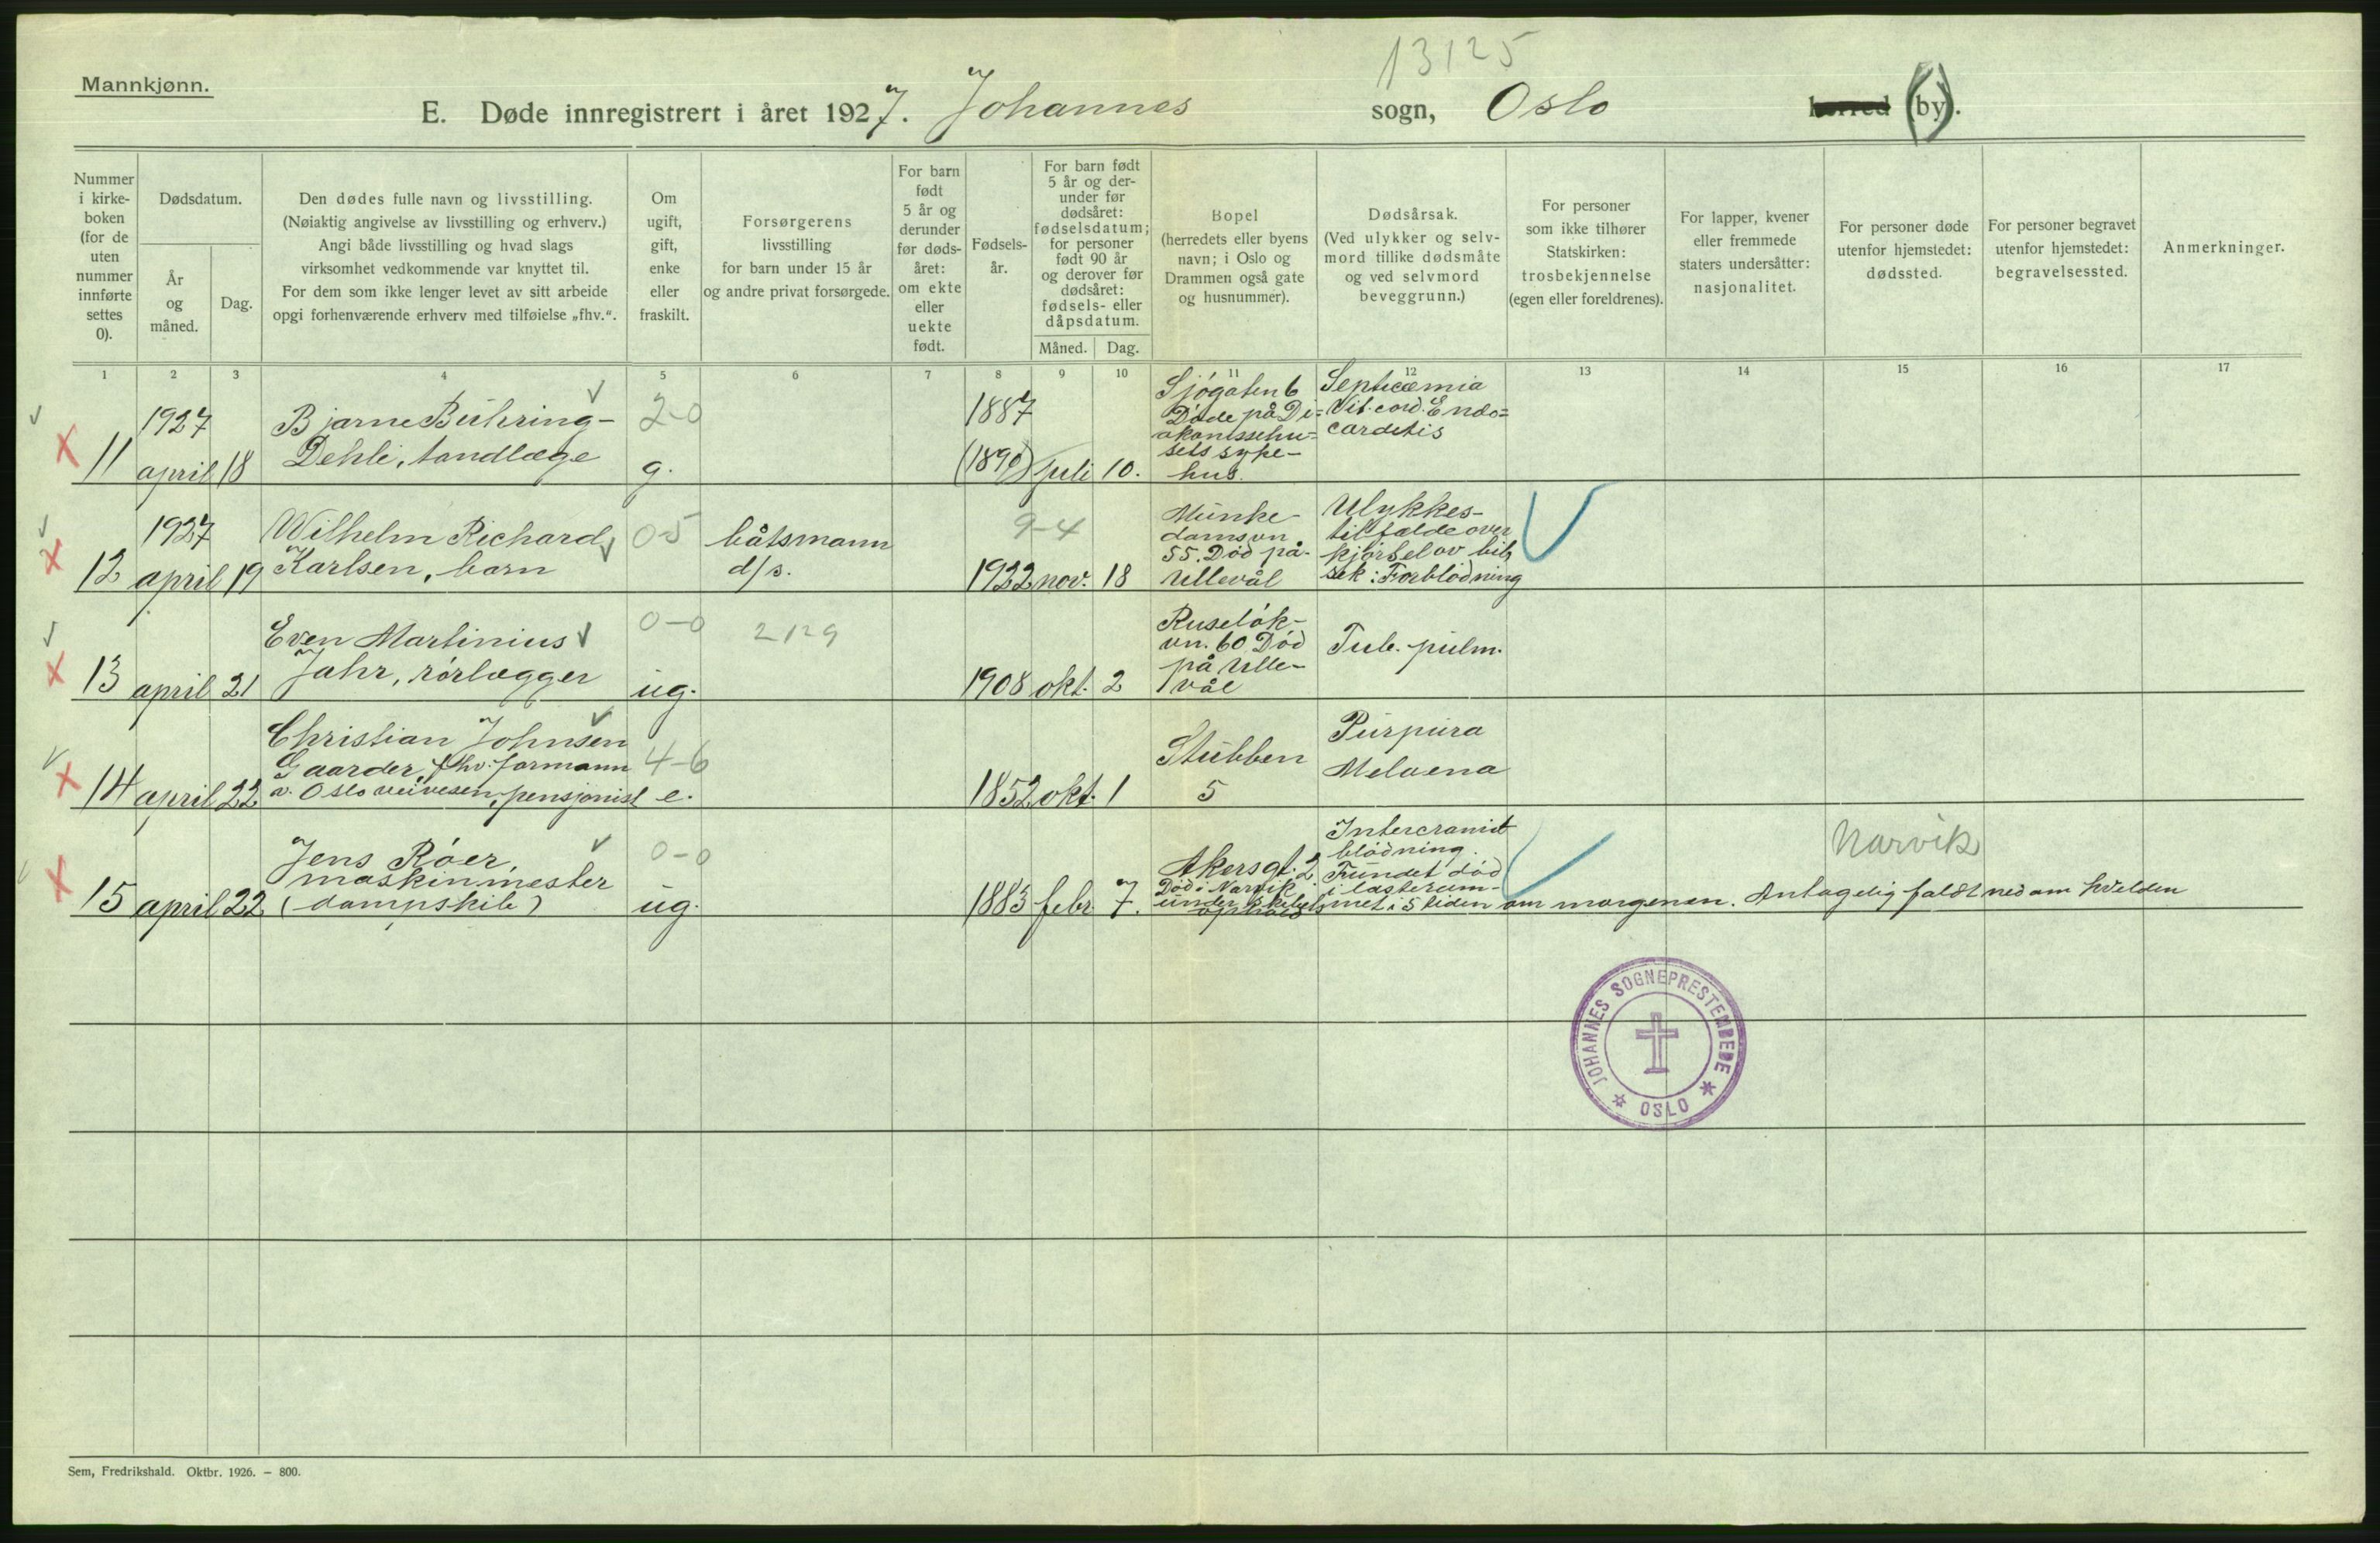 13125
Mannkjønn.
E. Døde innregistrert i året 1927. Johannes sogn, Oslo herred (by).
Nummer i kirkeboken (for de uten nummer innførte settes 0).
Dødsdatum.
År og måned.
Dag.
Den dødes fulle navn og livsstilling.
(Nøiaktig angivelse av livsstilling og erhverv.)
Angi både livsstilling og hvad slags
virksomhet vedkommende var knyttet til.
For dem som ikke lenger levet av sitt arbeide
opgi forhenværende erhverv med tilføielse „fhv.“.
Om ugift, gift, enke eller fraskilt.
Forsørgerens
livsstilling
for barn under 15 år
og andre privat forsørgede.
For barn født 5 år og derunder før dødsåret: om ekte eller uekte født.
Fødsels-
år.
For barn født
5 år og der-
under før
dødsåret:
fødselsdatum;
for personer
født 90 år
og derover før
dødsåret:
fødsels- eller
dåpsdatum.
Måned. Dag.
Bopel
(herredets eller byens
navn; i Oslo og
Drammen også gate
og husnummer).
Dødsårsak.
(Ved ulykker og selv-
mord tillike dødsmåte
og ved selvmord
beveggrunn.)
For personer
som ikke tilhører
Statskirken:
trosbekjennelse
(egen eller foreldrenes).
For lapper, kvener
eller fremmede
staters undersåtter:
nasjonalitet.
For personer døde
utenfor hjemstedet:
dødssted.
For personer begravet
utenfor hjemstedet:
begravelsessted.
Anmerkninger.
1 2 3 4 5 6 7 8 9 10 11 12 13 14 15 16 17
11
1927
april 18
Bjarne Bühring-
Dehli, tandlæge
2-0
g.
1887
(1890) juli 10.
Sjøgaten 6
Døde på Di-
akonissehu-
sets syke-
hus.
Septicæmia
Vit. cord. Endo=
carditis
12
1927
april 19
Wilhelm Richard
Karlsen, barn
0-5
båtsmann
d/s.
9-4
1922 nov. 18
Munke-
damsvn.
55. Død på
Ullevål
Ulykkes-
tilfælde over
kjørsel av bil,
sek: Forblødning
13
april 21
Even Martinius
Jahr, rørlægger
0-0
ug.
2129
1908 okt. 2
Ruseløk-
vn. 60. Død
på Ulle-
vål
Tub. pulm.
14
april 22
Christian Johnsen
Gaarder, fhv. formann
v. Oslo veivesen, pensjonist
4-6
e.
1852 okt. 1
Stubben
5
Purpura
Melaena
15
april 22
Jens Røer,
maskinmester
(dampskib)
0-0
ug.
1883 febr. 7.
Akersgt. 2
Død i Narvik
under skibets
ophold
Intercraniel
blødning.
Fundet død
i lasterum-
met i 5 tiden om morgenen. Antagelig faldt ned om kvelden
Narvik
JOHANNES SOGNEPRESTEMBEDE
OSLO
Sem, Fredrikshald. Oktbr. 1926. – 800.